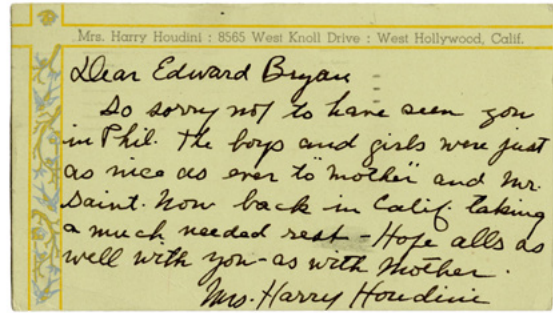 Mrs. Harry Houdini : 8565 West Knoll Drive : West Hollywood, Calif.
Dear Edward Bryan
So sorry not to have seen you
in Phil. The boys and girls were just
as nice as ever to "Mother" and Mr.
Saint. Now back in Calif. taking
a much needed rest - Hope alls as
well with you - as with Mother.
Mrs. Harry Houdini